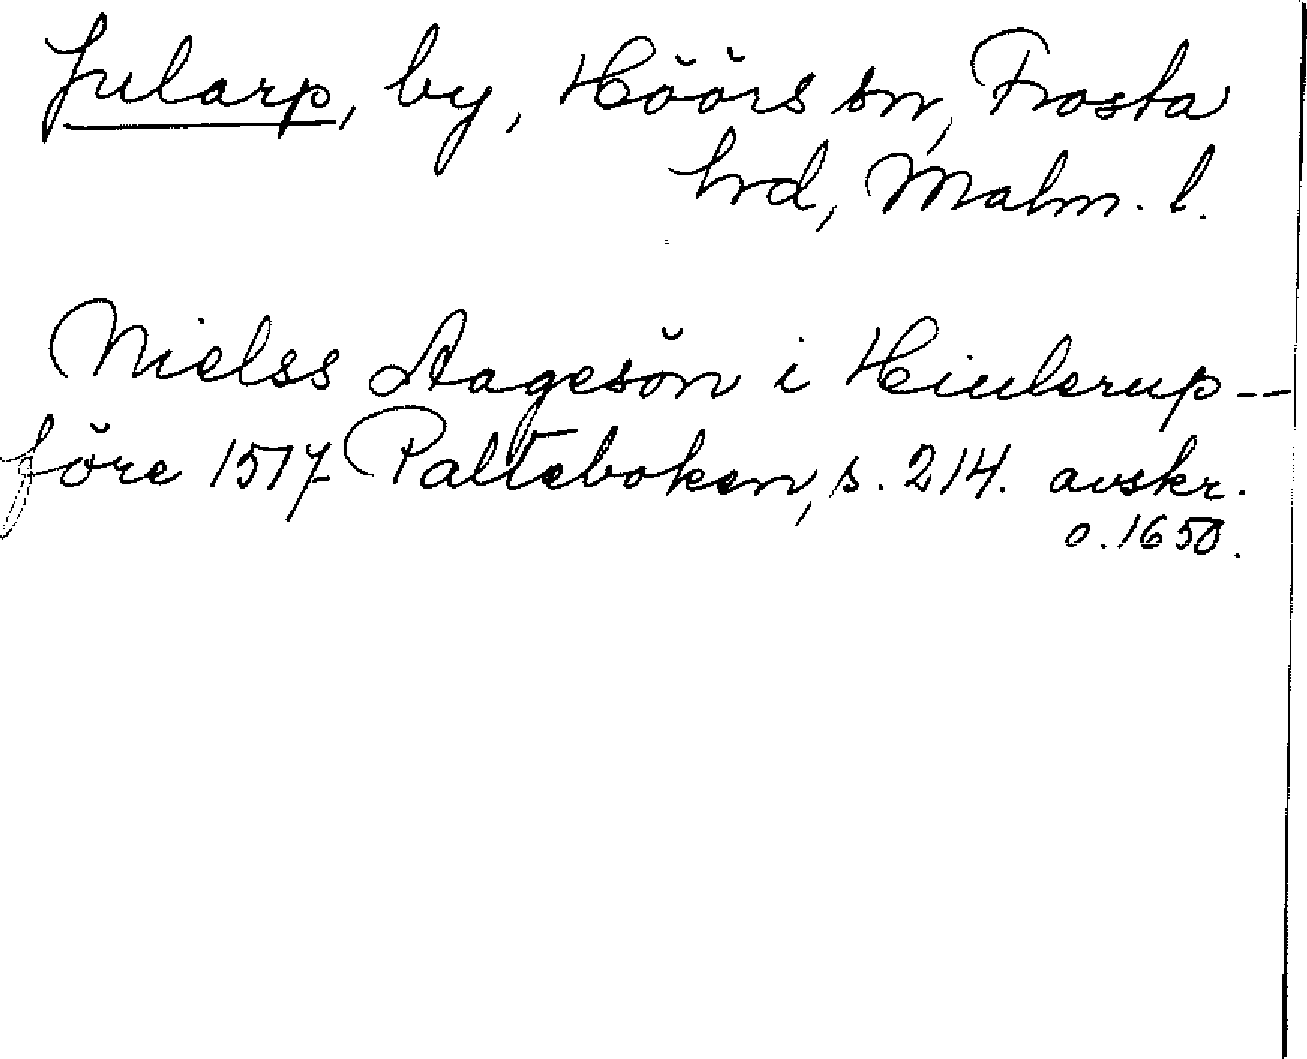 Jularp, by, Höörs sn, Frosta
hrd, Malm. l.
Nielss Aagesön i Hiulerup --
före 1517 Palteboken, s. 214. avskr.
o. 1650.